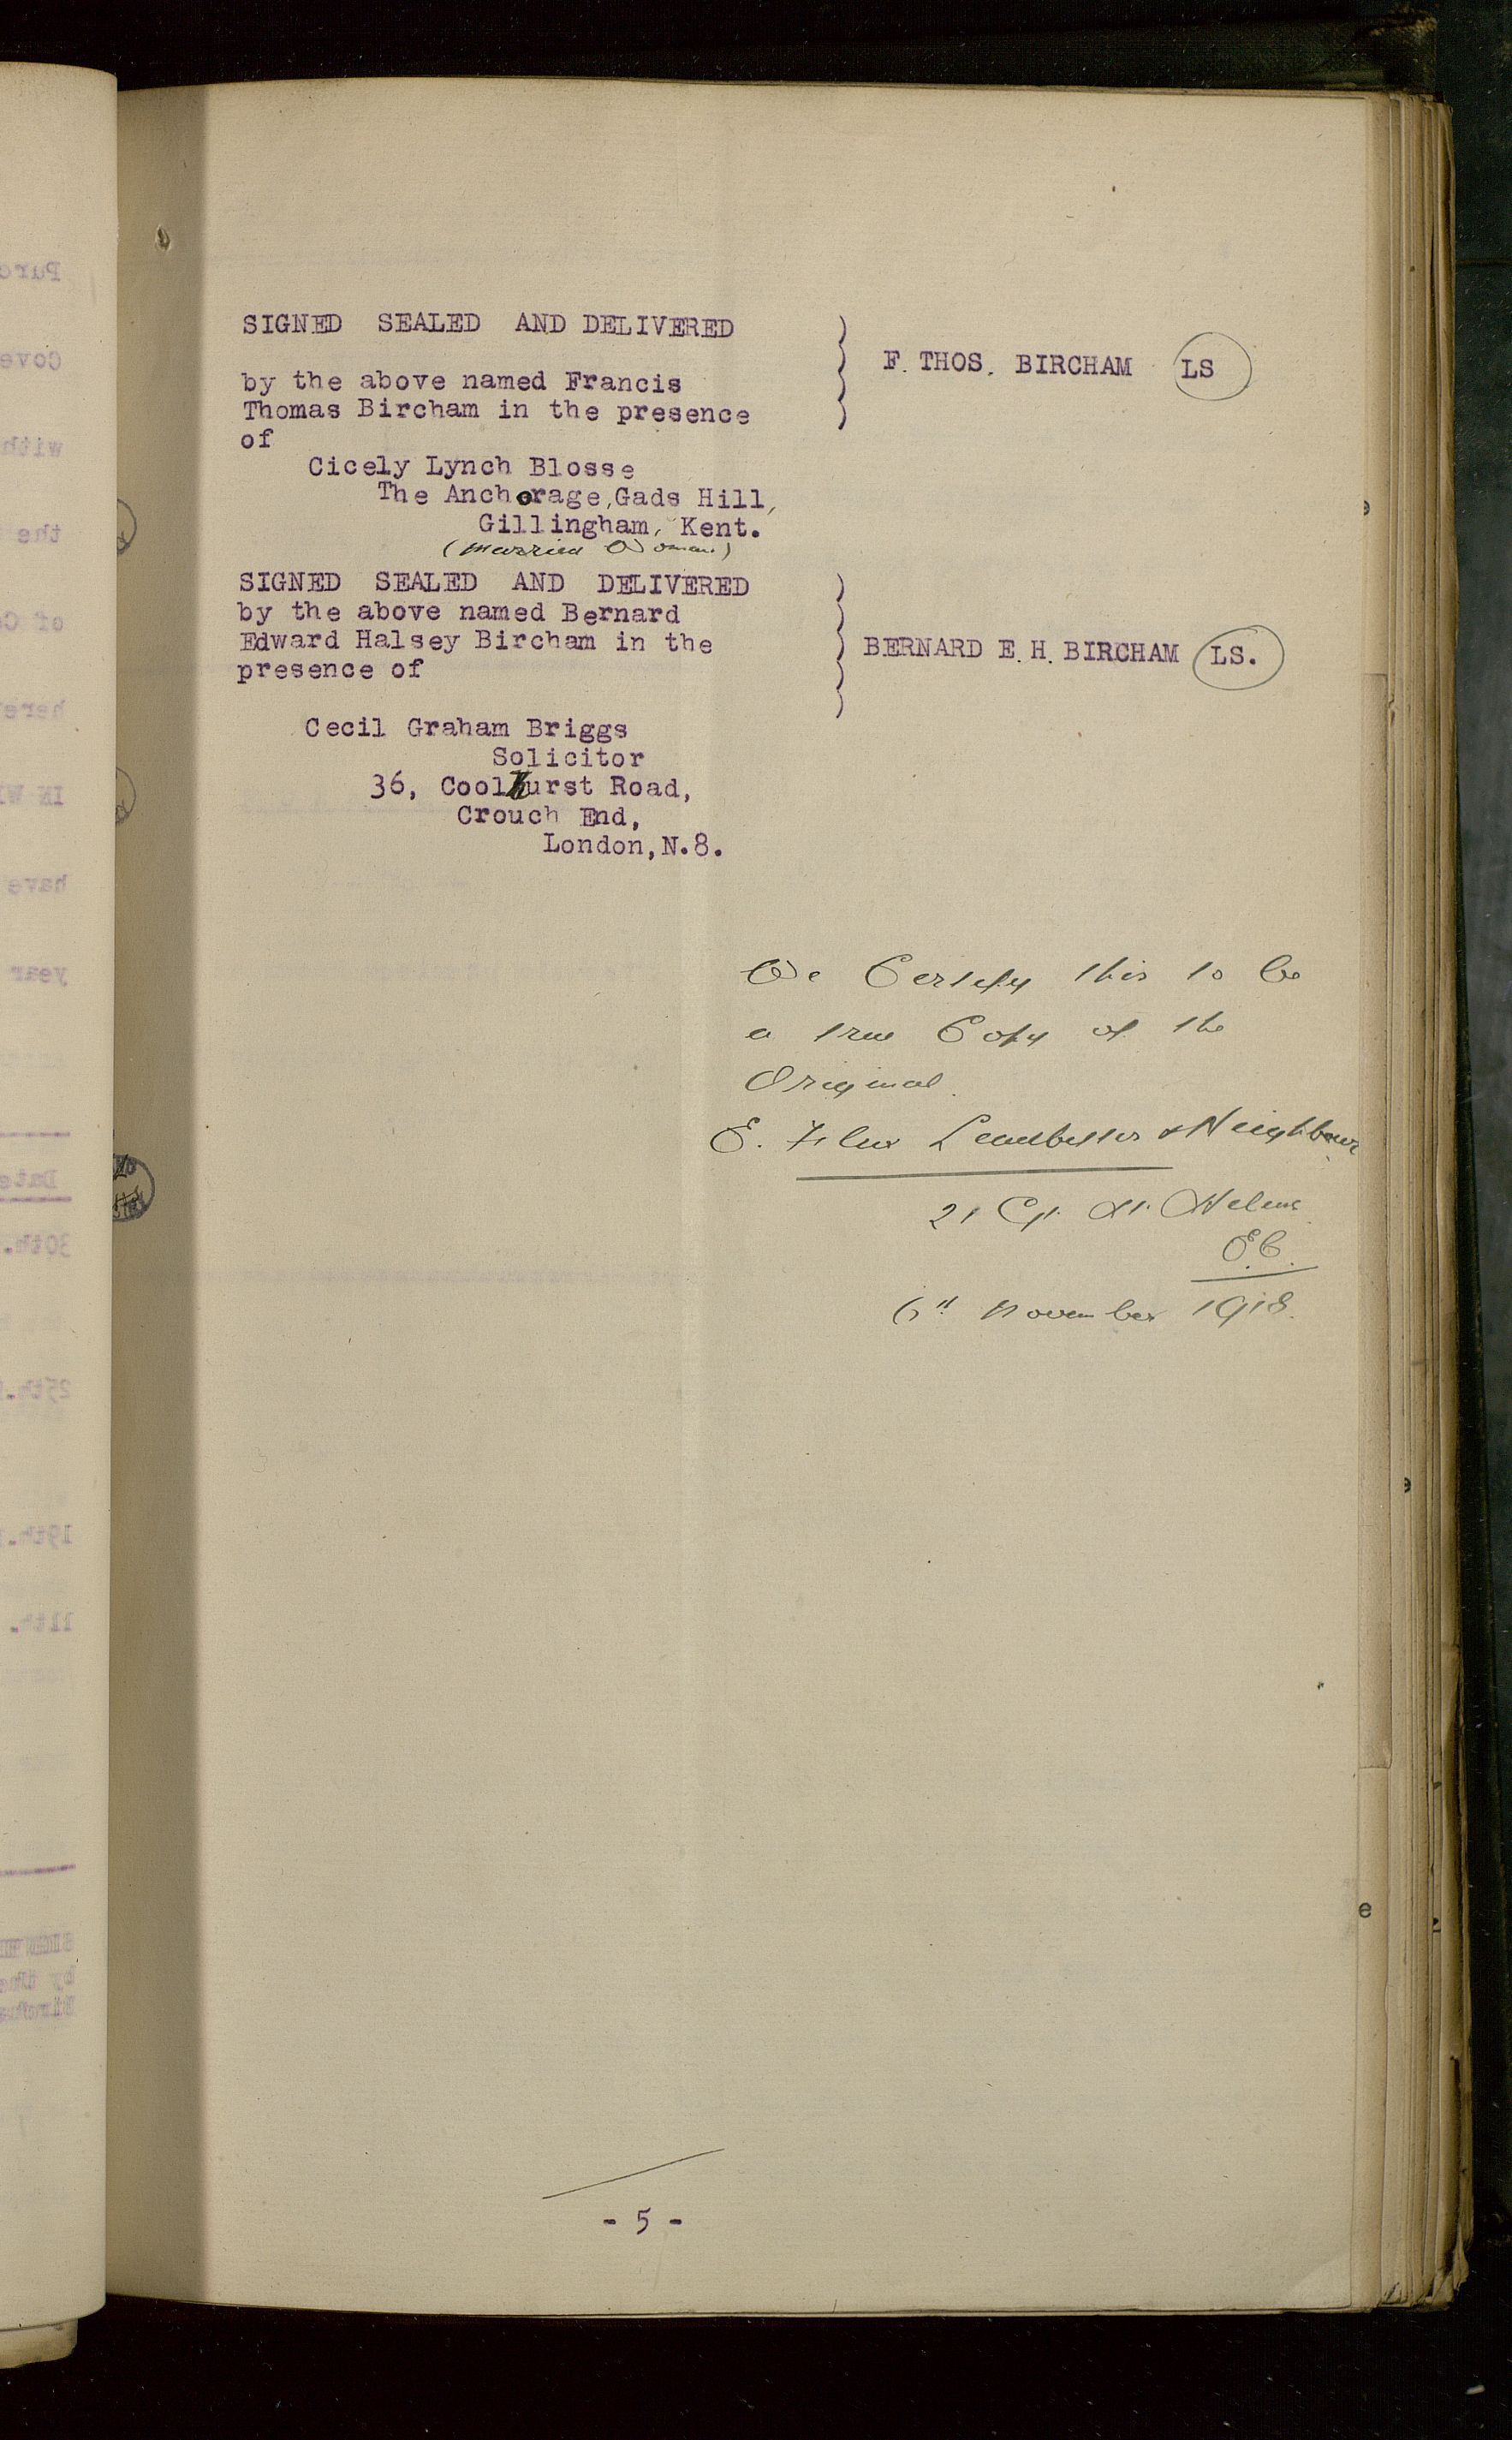 SIGNED SEALED AND DELIVERED
by the above named Francis
Thomas Bircham in the presence
of
F. THOS. BIRCHAM LS
Cicely Lynch Blosse
The Anchorage, Gads Hill,
Gillingham, Kent.
(Married Woman)
SIGNED SEALED AND DELIVERED
by the above named Bernard
Edward Halsey Bircham in the
presence of
BERNARD E. H. BIRCHAM LS.
Cecil Graham Briggs
Solicitor
36, Coolhurst Road,
Crouch End,
London, N.8.
We Certify this to be
a true Copy of the
Original.
E. Flux Leadbitter & Neighbour
21 Gt. St. Helens
E.C.
6th November 1918.
- 5 -